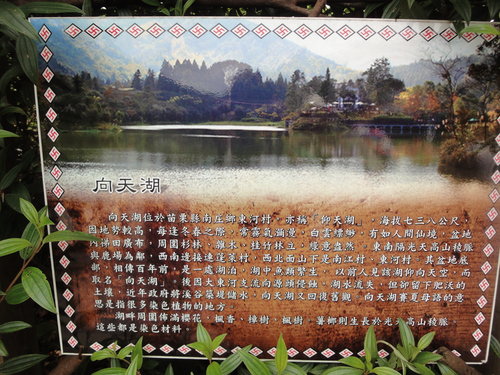 向天湖
向天湖位於苗栗縣南庄鄉東河村，亦稱「仰天湖」，海拔七三八公尺，
因地勢較高，每逢冬春之際，常霧氣瀰漫，白雲縹緲，有如人間仙境，盆地
內梯田廣布，周圍杉林、雜木、桂竹林立，綠意盎然，東南隔光天高山稜脈
與鹿場為鄰，西南邊接連蓬萊村，西北面山下是南江村、東河村。其盆地底
部，相傳百年前，是一處湖泊，湖中魚類繁生，以前人見該湖仰向天空，而
取名「向天湖」。後因大東河支流向源頭侵蝕，湖水流失，但卻留下肥沃的
土壤，近年政府將溪谷築堤儲水，向天湖又回復舊觀。向天湖賽夏母語的意
思是指很多染色植物的地方
湖畔周圍佈滿櫻花、楓香、樟樹、楓樹、薯榔則生長於光天高山稜脈，
這些都是染色材料。